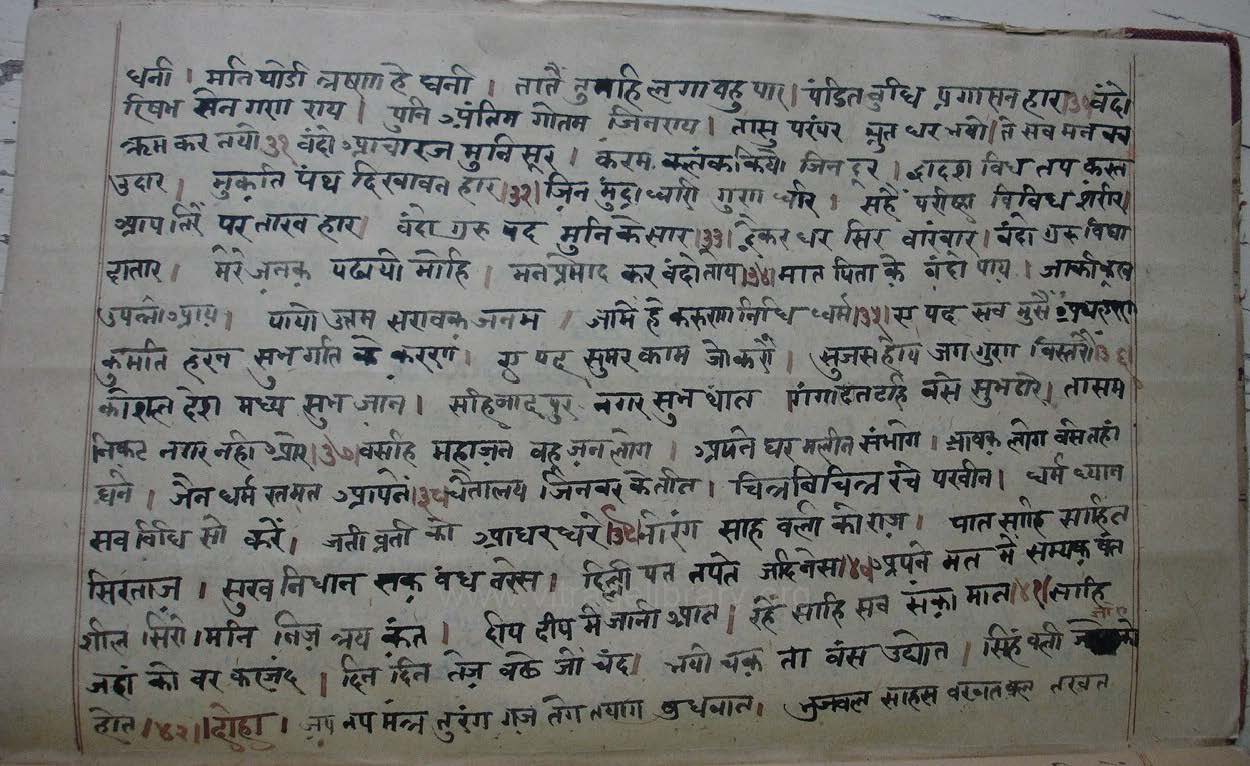 धनी । मति थोडी भ्रषण हे घनी । तातै नुमहि लगावहु पार । पंडित बुधि प्रगासन हार ।३०। वंदो
रिषभ सेन गण राय । पुनि अंतिम गोतम जिनराय । तासु परंपर श्रुत धर भयो । ते सब मन वच
क्रम कर नयो ३१ वंदो आचारज मुनि सूर । करम कलंक किये जिन दूर । द्वादश विध तप करत
उदार । मुकति पंथ दिखावन हार ।३२। जिन मुंद्रा ध्यारी गुण धीर । सहै परीषा विविध शरीर ।
आप तिरै पर तारन हार । वंदो गुरु पद मुनि के सार ।३३। द्वेकर धर सिर वारंवार । वंदो गुरु विद्या
दातार । मेरे जनक पढायो मोहि । मन प्रमाद कर वंदो तोय ।३४। मात पिता के वंदो पाय । जाकी कूख
उपन्नो आय । पायो उत्तम सरावक जनम । जामें हे करुणा निधि धर्म ।३५। ए पद सब मुझै
कुमति हरन सुभ गति के करण । ए पद सुमर काम जो करों । सुजस होय जग गुण विस्तरों ।३६।
कोशल देश मध्य सुभ जान । साहिजादपुर नगर सुभ थान गंगा के तट वसे सुभ ठोर । ता सम
निकट नगर नही ओर ।३७। वसहि महाजन वहु जन लोग । अपने घर मलीन संभोग । श्रावक लोग वसे तहां
घने । जैन धर्म रत मत आपने ।३८। चैतालय जिनवर के तीत । चित्र विचित्र रचे परवीन । धर्म ध्यान
सब विधि सो करें । जती व्रती को आधर धरे ।३९। नौरंग साह वली को राज । पातसाहि साहित
सिरताज । सुख निधान सक वंध नरेस । दिल्ली पत तपते जदिनेस ।४०। अपने मत में सम्यक वंत
शील सिरोमनि निज त्रय कंत । दीप दीप में जानी आन । रहें साहि सब संका मान ।४१। साहि
जहां को वर करजंद । दिन दिन तेज वढे जो चंद । भयो चक ता वंस उद्योत । सिंह वली
होत ।४२। दोहा । जप तप मंत्र तुरंग गज तेग तयाग बुधवान । भुजवल साहस वरगत वल तखत